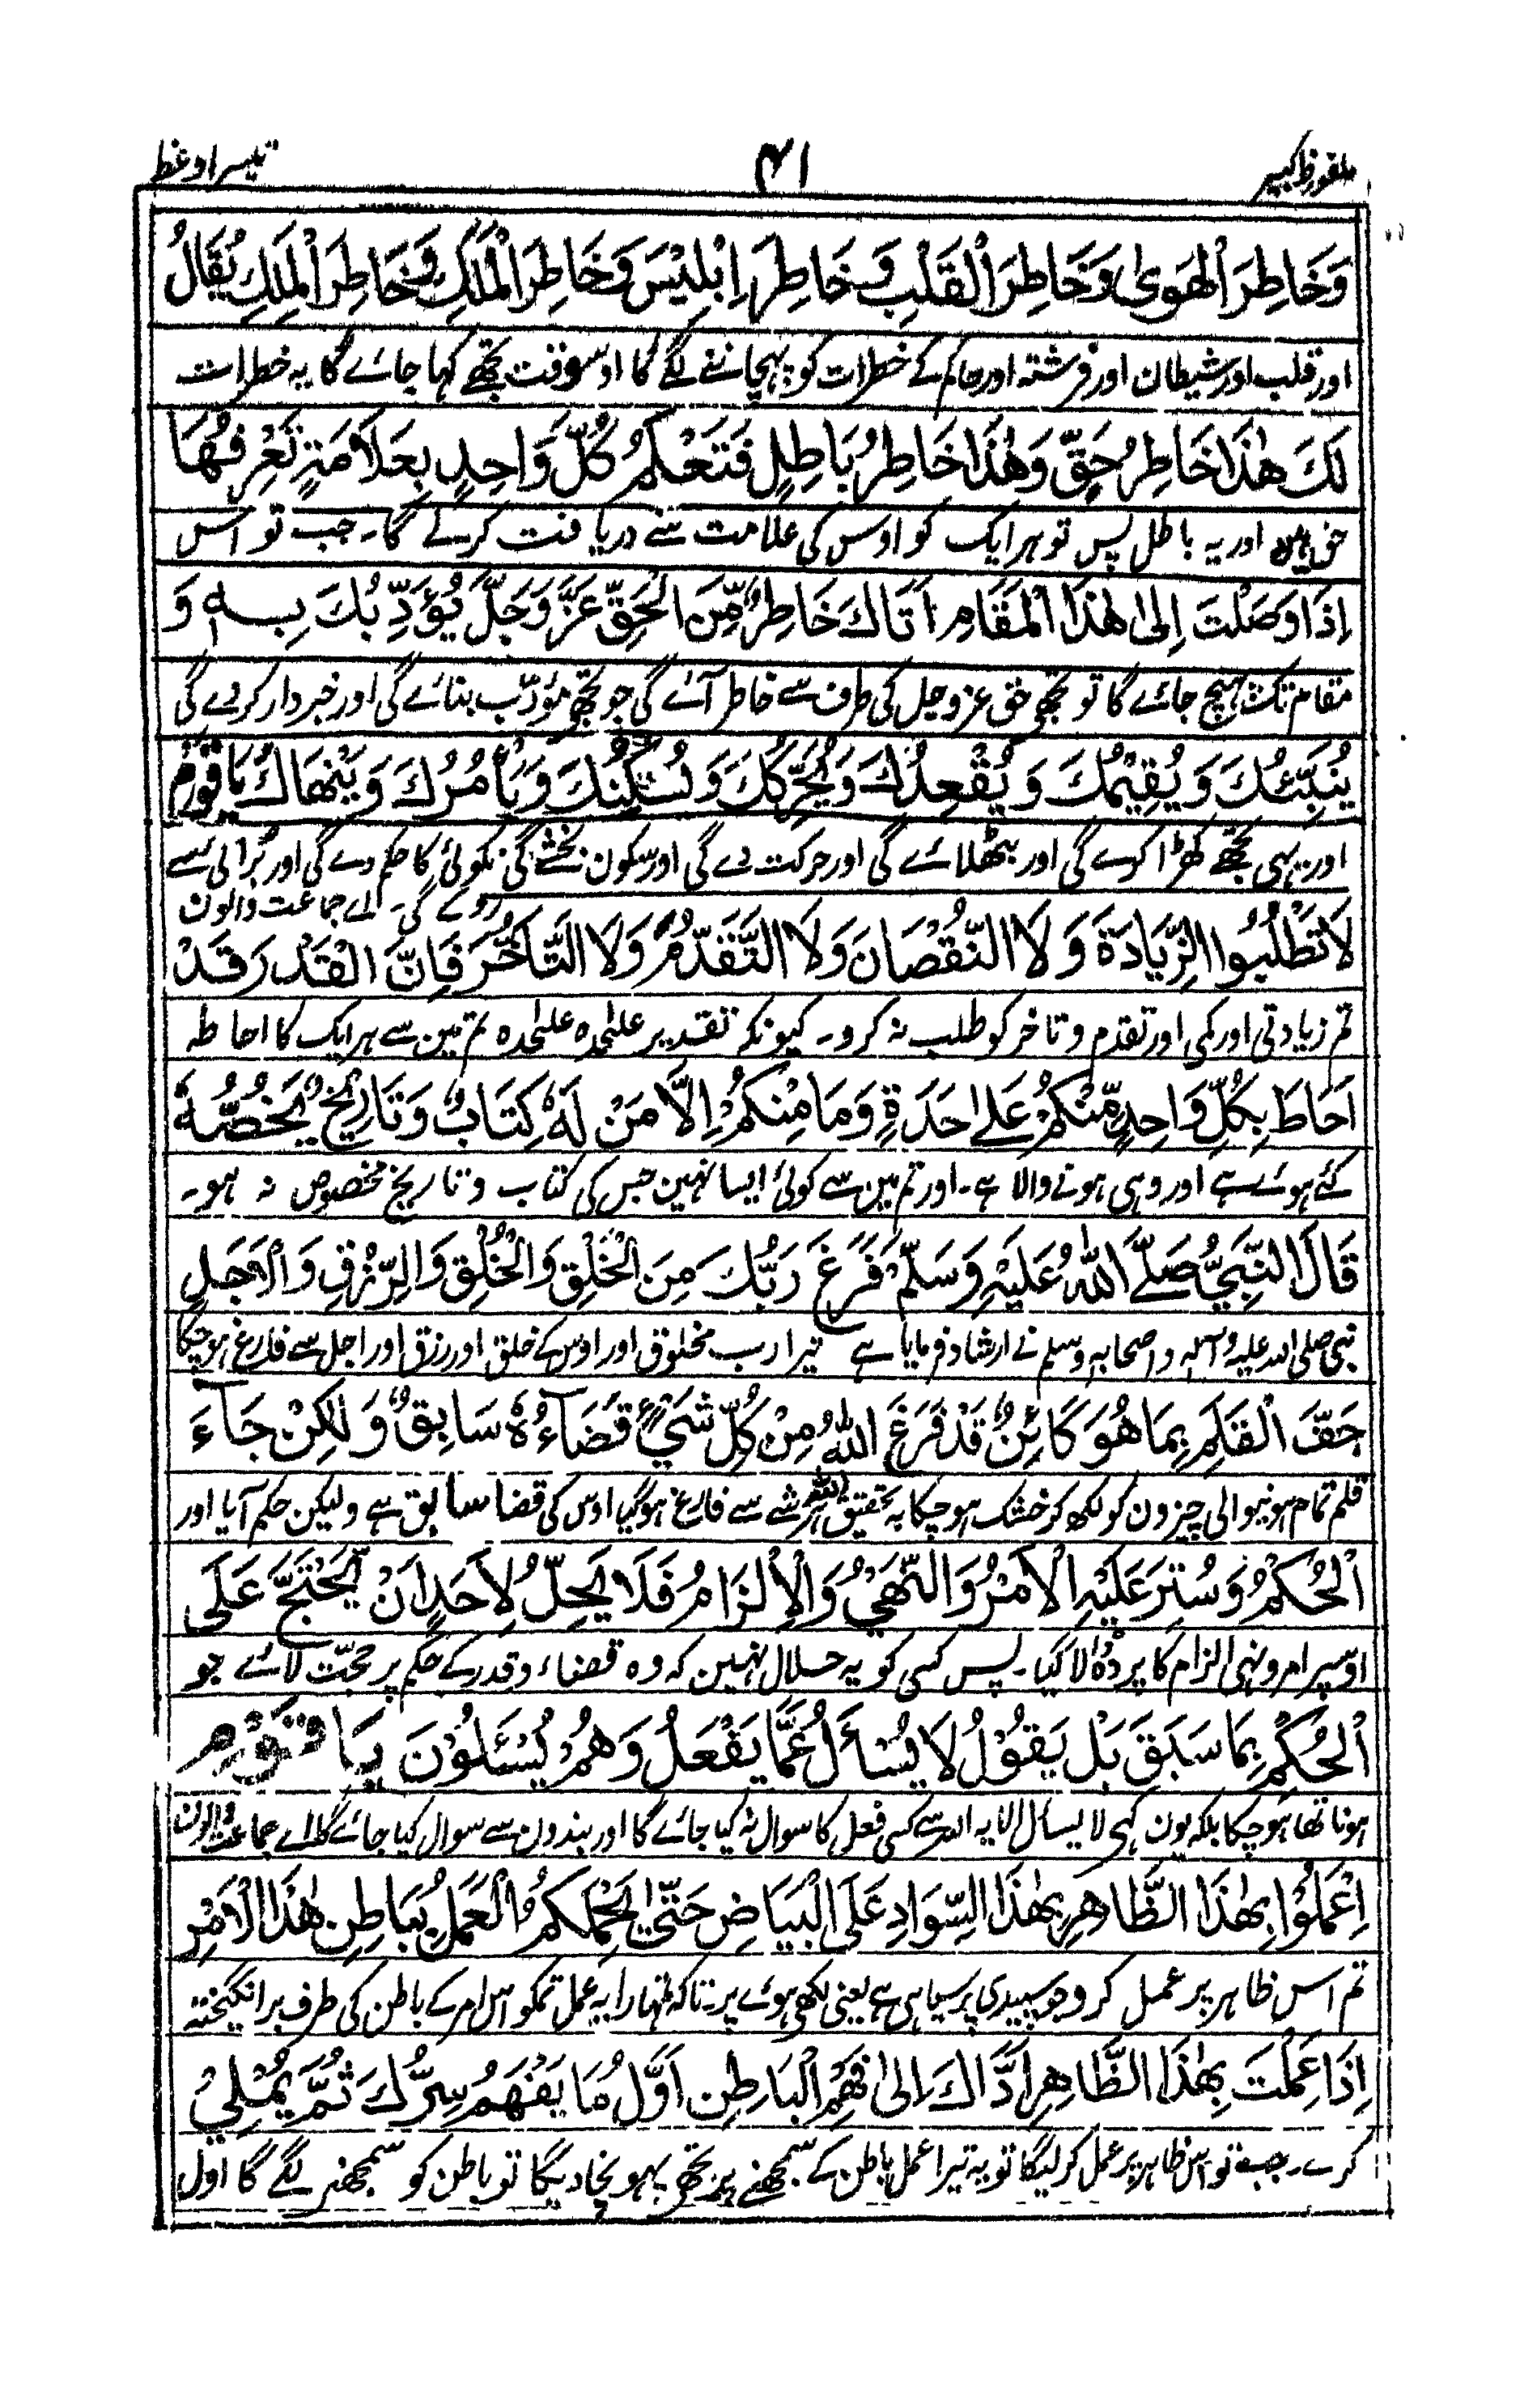 ملفوظ کبیر
۴۱
تیسرا وعظ
وَخَاطِرَ الْهَوىٰ وَخَاطِرَ الْقَلْبِ وَخَاطِرَ اِبْلِیْسَ وَخَاطِرَ الْمَلَكِ وَخَاطِرَ الْمَلِكِ یُقَالُ
اور قلب اور شیطان اور فرشتہ اور حاکم کے خطرات کو پہچاننے لگے گا اوسوقت تجھے کہا جائے گا یہ خطرات
لَكَ هٰذَا خَاطِرُ حَقٍّ وَهٰذَا خَاطِرُ بَاطِلٍ فَتَعْلَمُ كُلَّ وَاحِدٍ بِعَلَامَةٍ تَعْرِفُهَا
حق ہین اور یہ باطل پس تو ہر ایک کو اوس کی علامت سے دریافت کرلے گا۔ جب تو اس
اِذَا وَصَلْتَ اِلىٰ هٰذَا الْمَقَامِ اَتَاكَ خَاطِرٌ مِّنَ الْحَقِّ عَزَّ وَجَلَّ یُؤَدِّبُكَ بِهٖ وَ
مقام تک پہنچ جائے گا تو تجھے حق عز وجل کی طرف سے خاطر آئے گی جو تجھے مؤدّب بنائے گی اور خبردار کردے گی
یُنَبِّئُكَ وَیُقِیْمُكَ وَیُقْعِدُكَ وَیُحَرِّكُكَ وَیُسَكِّنُكَ وَیَأْمُرُكَ وَیَنْهَاكَ یَا قَوْمُ
اور یہی تجھے کھڑا کرے گی اور بٹھلائے گی اور حرکت دے گی اور سکون بخشے گی نکوئی کا حکم دے گی اور بُرائی سے
روکے گی۔ اے جماعت والون
لَا تَطْلُبُوا الزِّیَادَةَ وَلَا النُّقْصَانَ وَلَا التَّقَدُّمَ وَلَا التَّأَخُّرَ فَاِنَّ الْقَدْرَ قَدْ
تم زیادتی اور کمی اور تقدم و تاخر کو طلب نہ کرو۔ کیونکہ تقدیر علیٰحدہ علیٰحدہ تم مین سے ہر ایک کا احاطہ
اَحَاطَ بِكُلِّ وَاحِدٍ مِّنْكُمْ عَلٰے حَدَةٍ وَمَا مِنْكُمْ اِلَّا مَنْ لَهٗ كِتَابٌ وَتَارِیْخٌ یَّخُصُّهٗ
کئے ہوئے ہے اور وہی ہونے والا ہے۔ اور تم مین سے کوئی ایسا نہین جس کی کتاب و تاریخ مخصوص نہ ہو۔
قَالَ النَّبِیُّ صَلَّے اللّٰهُ عَلَیْهِ وَسَلَّمَ فَرَغَ رَبُّكَ مِنَ الْخَلْقِ وَالْخُلُقِ وَالرِّزْقِ وَالْاَجَلِ
نبی صلی اللہ علیہ و آلہ و اصحابہ وسلم نے ارشاد فرمایا ہے تیرا رب مخلوق اور اوس کے خلق اور رزق اور اجل سے فارغ ہوچکا
جَفَّ الْقَلَمُ بِمَا هُوَ كَائِنٌ قَدْ فَرَغَ اللّٰهُ مِنْ كُلِّ شَیْءٍ قَضَاءُهٗ سَابِقٌ وَلٰكِنْ جَاءَ
قلم تمام ہونیوالی چیزون کو لکھ کر خشک ہوچکا بہ تحقیق اللہ ہر شے سے فارغ ہوگیا اوس کی قضا سابق ہے ولیکن حکم آیا اور
الْحُكْمُ وَسُتِرَ عَلَیْهِ الْاَمْرُ وَالنَّهْیُ وَالْاِلْزَامُ فَلَا یَحِلُّ لِاَحَدٍ اَنْ یَّحْتَجَّ عَلَى
اوسپر امر و نہی الزام کا پردہ ڈالا گیا۔ پس کسی کو یہ حلال نہین کہ وہ قضاء و قدر کے حکم پر حجّت لائے جو
الْحُكْمِ بِمَا سَبَقَ بَلْ یَقُوْلُ لَا یُسْأَلُ عَمَّا یَفْعَلُ وَهُمْ یُسْئَلُوْنَ یَا قَوْمِ
ہونا تھا ہوچکا بلکہ یون کہے لا یسأل الایہ اللہ سے کسی فعل کا سوال نہ کیا جائے گا اور بندون سے سوال کیا جائے گا اے جماعت والون
اِعْمَلُوْا بِهٰذَا الظَّاهِرِ بِهٰذَا السَّوَادِ عَلَى الْبَیَاضِ حَتّٰى یَحْمِلَكُمُ الْعَمَلُ بِبَاطِنِ هٰذَا الْاَمْرِ
تم اس ظاہر پر عمل کرو جو سپیدی پر سیاہی ہے یعنی لکھی ہوئے پر۔ تاکہ تمہارا یہ عمل تمکو اس امر کے باطن کی طرف برانگیختہ
اِذَا عَمِلْتَ بِهٰذَا الظَّاهِرِ اَدَّاكَ اِلىٰ فَهْمِ الْبَاطِنِ اَوَّلُ مَا یَفْهَمُ سِرُّكَ ثُمَّ یُمْلِیْ
کرے۔ جب تو اس ظاہر پر عمل کرلیگا تو یہ تیرا عمل باطن کے سمجھنے پر تجھے پہونچا دیگا تو باطن کو سمجھنے لگے گا اول